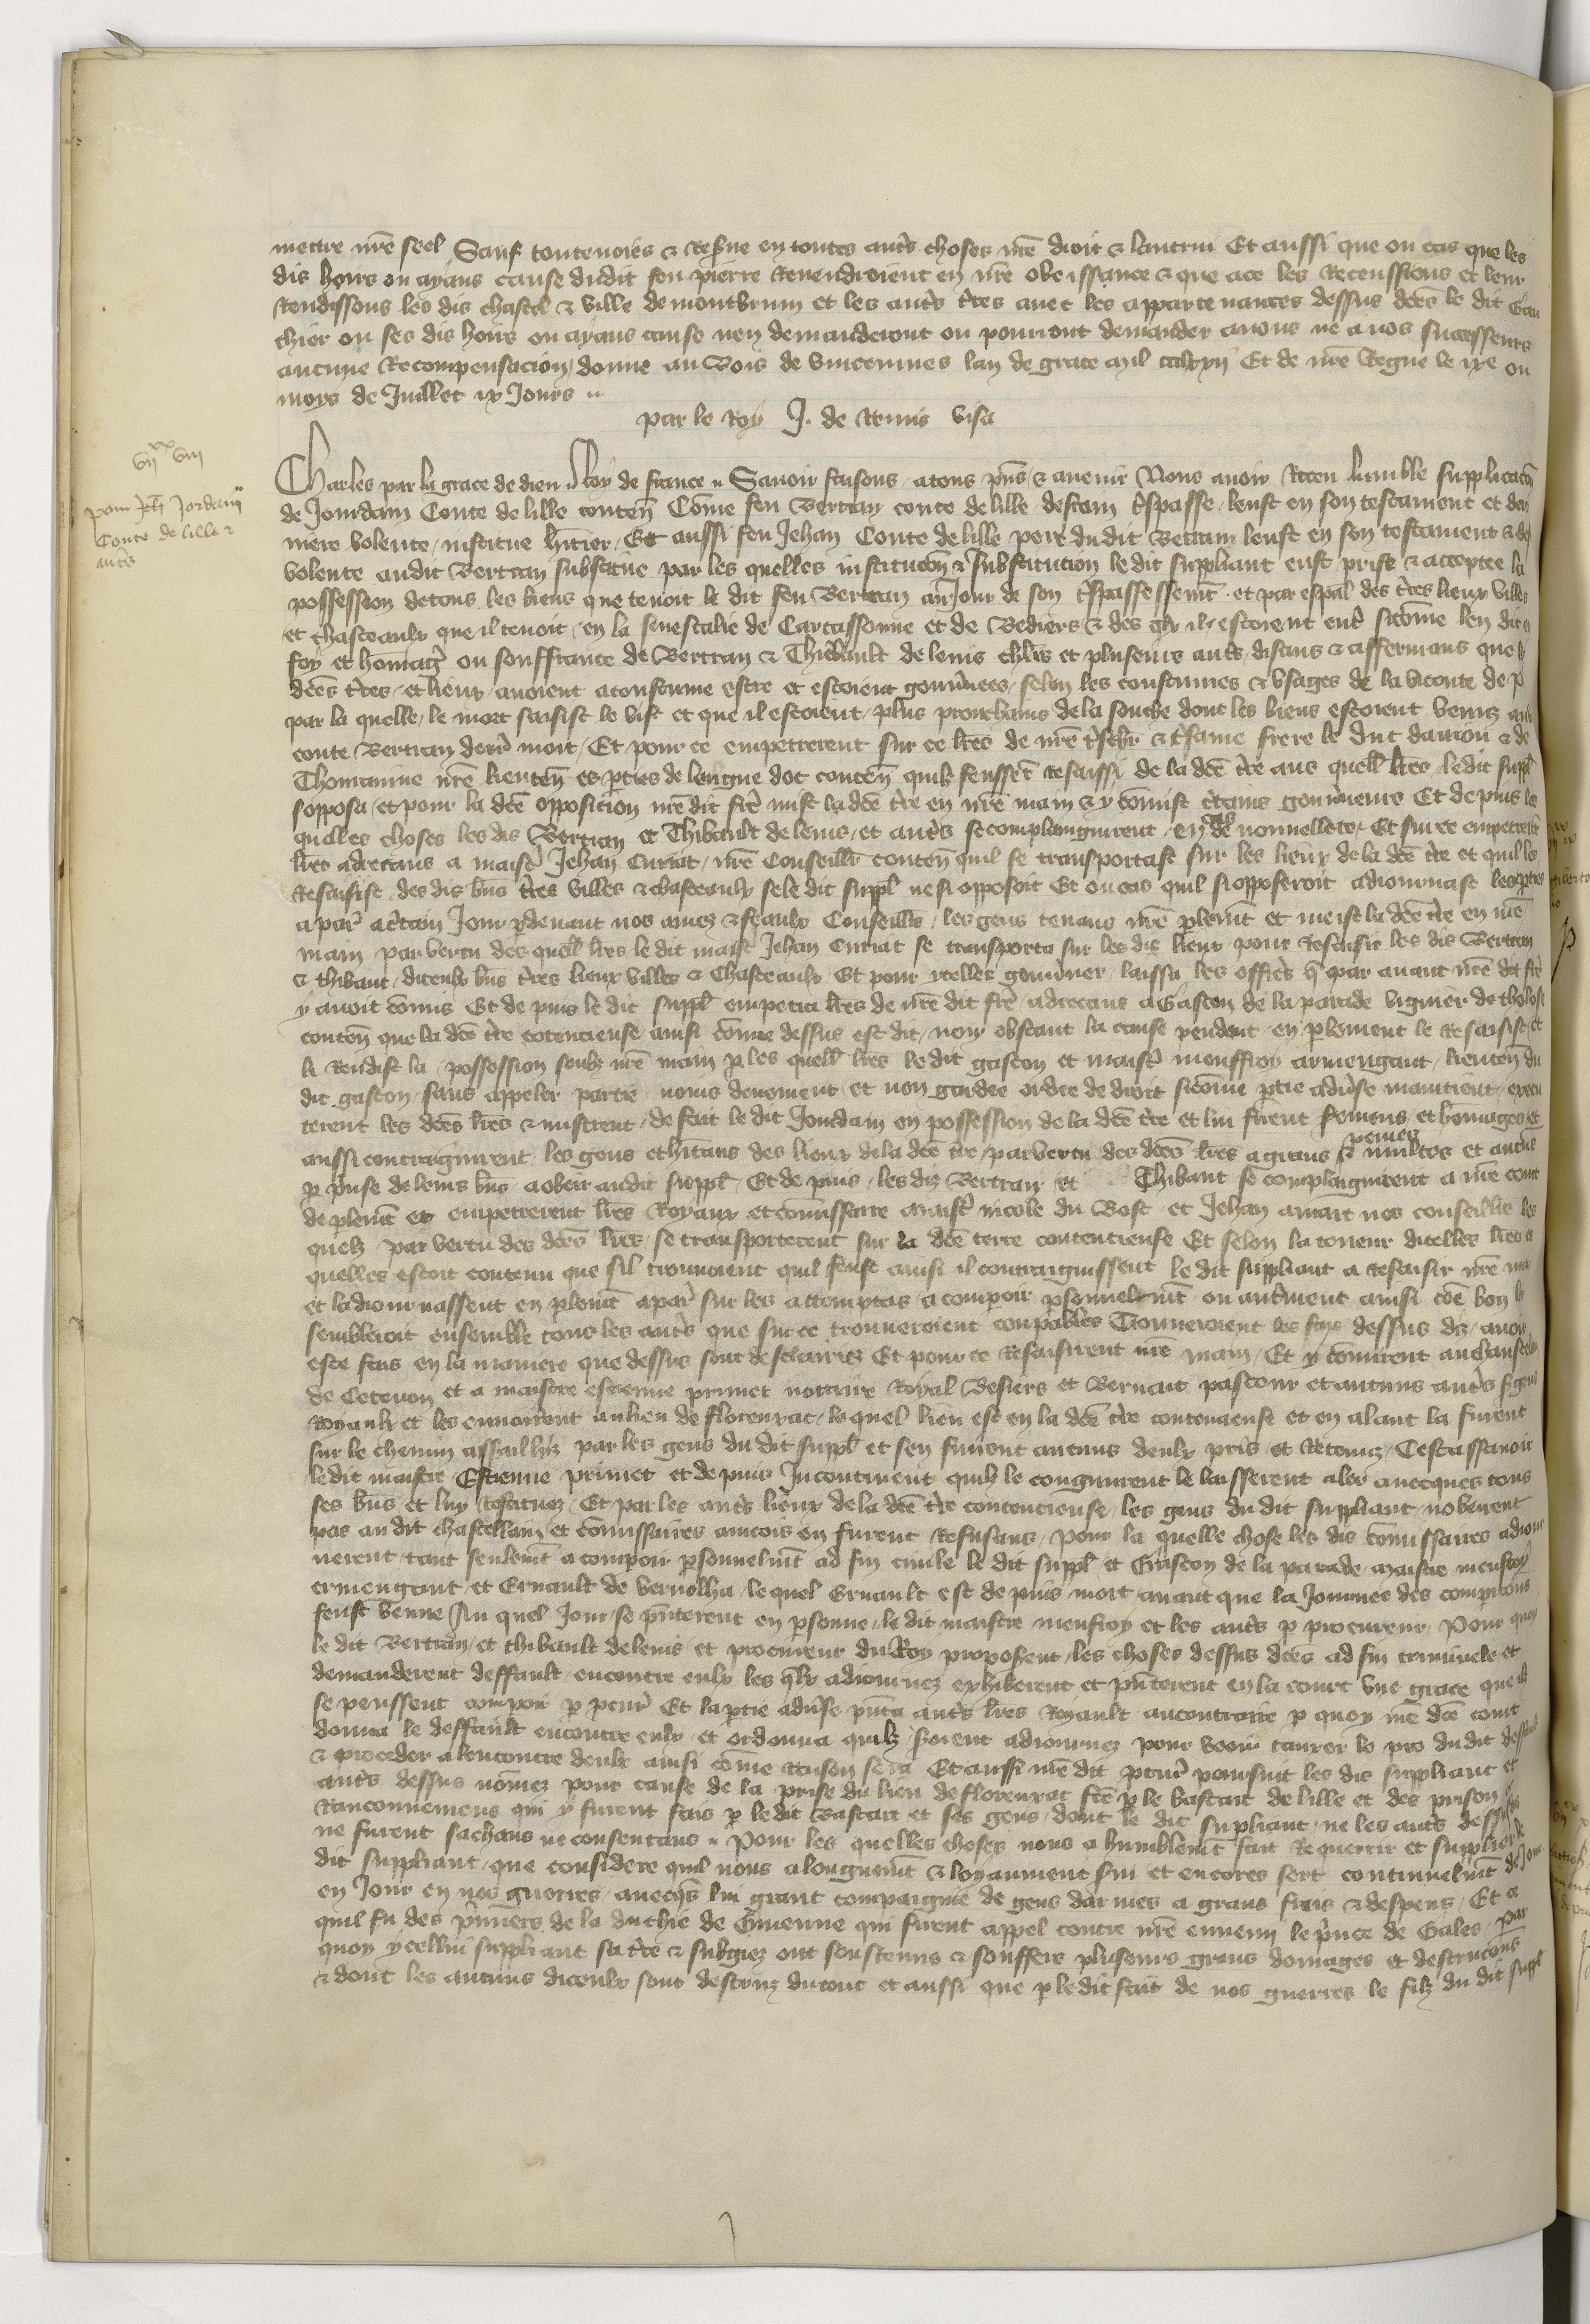 mettre nr̃e seel Sauf toutevoies & reserve en toutes autr̃s choses nr̃e droit & lautrui Et aussi que ou cas que les
dis hoirs ou ayans cause dudit feu pierre Revendroient en nr̃e obeissance & que a ce les Receussions et leur
Rendissons les dis chastel & ville de montbrun et les autr̃s tr̃es avec les appartenances dessus dc̃es le dit Gau
chier ou ses dis hoirs ou ayans cause nen demanderont ou pourront demander a nous ne a nos successeurs
aucune Recompensacion, donne au Bois de vincennes lan de grace mil ccclxxij Et de nr̃e Regne le ixe ou
moys de Juillet ix Jours
par le Roy J. de Remis visa
vijxx viij
pour Jeh̃ Jordain
Conte de lille &
autr̃s
Charles par la grace de dieu Roy de france Savoir faisons a tous pñs & avenir Nous avoir Receu humble supplicacõn
de Jourdain Conte de lille conteñ Cõme feu Bertran conte de lille dr̃ain tr̃spasse, leust en son testament et der
niere volente, institue hr̃itier, Et aussi feu Jehan Conte de lille pere du dit Bertran leust en son testament & de
volente audit Bertran substitue par les quelles institucõn & substitution le dit suppliant eust prise & acceptee la
possession de tous les biens que tenoit le dit feu Bertran au Jour de son tr̃spassement et par espal̃ des tr̃es lieux villes
et chasteaulx que il tenoit, en la seneschalie de Carcassonne et de Bediers, & des qlx il estoient entr̃ sicõme len dit en
foy et hommage ou souffrance de Bertran & Thibault de levis chl̃rs et plusieurs autr̃s, disans & affermans que les
dc̃es tr̃es, et lieux, avoient acoustume estre et estoient gouvr̃nees, selon les coustumes & usages de la viconte de p
par la quelle, le mort saisist le vif et que il estoient, plus prouchains de la souche dont les biens estoient venuz au
conte Bertran derr̃ mort, Et pour ce empetrerent sur ce lr̃es de nr̃e tr̃schr̃ & tr̃same frere le duc danjou & de
Thouraine nr̃e lieuteñ es pties de langue doc conteñ quilz feusser̃t resaissi de la dc̃e tr̃e aus quell̃ lr̃es le dit suppl̃
sopposa, et pour la dc̃e opposition nr̃e dit fr̃e mist la dc̃e tr̃e en nr̃e main & y cõmist cr̃tains gouvr̃neurs Et depuis les
quelles choses les dis Bertran et Thibault de levis, et autr̃s se complaingnirent, en cas de nouvellete, Et sur ce empetrerẽt
lr̃es adrecans a maistr̃ Jehan Curiat, nr̃e Conseillr̃ conteñ quil se transportast sur les lieux de la dc̃e tr̃e et quil les
Resaisist, des dis bñs tr̃es villes & chasteaulx se le dit suppl̃ ne si opposoit Et ou cas quil si opposeroit adiournast les pties
a par̃ a cr̃tain Jour pdevant nos amez & feaulx Conseillr̃s, les gens tenans nr̃e plem̃t et meist la dc̃e tr̃e en nr̃e
main par vertu des quell̃ lr̃es le dit maistr̃ Jehan Curiat se transporta sur les dis lieux pour Resaisir les dis Bertran
& thibaut, diceulx bñs tr̃es lieux villes & Chasteaulx Et pour ycelles gouvr̃ner, laissa les officr̃s q̃ par avant nr̃e dit fr̃e
y avoit cõmis Et depuis le dit suppl̃ empetra lr̃es de nr̃e dit fr̃e adrecans a Gascon de la parade viguier de tholose
conteñ que la dc̃e tr̃e cõtencieuse ainsi cõme dessus est dit, non obstant la cause pendant, en plement le Resaisist, et
li Rendist la, possession soubz nr̃e main p les quell̃ lr̃es le dit gascon et maistr̃ menffroy armengaut, lieuteñ du
dit gascon, sans appeler partie moins deuement, et non gardee ordre de droit sicõme ptie advr̃se maintient, execu
terent les dc̃es lr̃es & mistrent, de fait le dit Jourdain en possession de la dc̃e tr̃e et lui firent sermens, et hõmages et
aussi contraignirent les gens et hr̃itans des lieux de la dc̃e tr̃e par vertu des dc̃es lr̃es a grans peines & multes et autre
p pr̃nse de leurs bñs a obeir audit suppl̃, Et depuis, les diz Bertran et Thibaut se complaignirent a nr̃e court
de plem̃t et empetrerent lr̃es Royaux et commissoire maistr̃ nicole du Bost et Jehan amart nos conseillr̃s les
quelz par vertu des dc̃es lr̃es, se transporterent sur la dc̃e terre contencieuse Et selon la teneur dicelles lr̃es es
quelles estoit contenu que sil trouvoient quil feust ainsi il contraignissent le dit suppliant a Resaisir nr̃e mai
et ladiournassent en plem̃t a par̃ sur les attemptas a compoir psonnelm̃t ou autr̃ment ainsi cõe bon l
sembleroit ensemble tous les autr̃s que sur ce trouveroient coupables Trouverent les fais dessus diz, avoir
este fais en la maniere que dessus sont desclairiez Et pour ce Resaisirent nr̃e main, Et y cõmirent au chastelain
de Cetenon et a maistre estienne primet notaire Royal Besiers et Bernart pastour et aucuns autr̃s sr̃gens
Royaulx et les envoierent au lieu de florenzac, lequel lieu est en la dc̃e tr̃e contencieuse et en alant la furent
sur le chemin assailliz par les gens du dit suppl̃ et sen furent aucuns deulx pris et Retenuz, Cest assavoir
ledit maistre Estienne primet et depuis Incontinent quilz le congnurent le laisserent aler avecques tous
ses bñs et luy restituez, Et par les autr̃s lieux de la dc̃e tr̃e contencieuse, les gens du dit suppliant, nobeirent
pas au dit chastellain et cõmissaires aincois en furent Refusans, Pour la quelle chose les dis cõmissaires adiour
nerent tant seulem̃t a compoir psonnelm̃t ad fin civile le dit suppl̃ et Gascon de la parade maistre menfroy
ermengaut, et Ernault de vernolha, le quel Ernault est depuis mort avant que la Journee des compicõns
feust venue Au quel Jour se pñterent en psonne, le dit maistre menfroy et les autr̃s p procureur, Pour quoy
le dit Bertran, et thibault de levis et procureur du Roy proposent, les choses dessus dc̃es ad fin criminele et
demanderent deffault, encontre eulx les qlx adiournez exhiberent et pñterent en la court une grace que ilz
se peussent compoir p pcur̃ Et la ptie advr̃se pñta autr̃s lr̃es Royault au contraire p quoy nr̃e dc̃e court
donna le deffault encontre eulx, et ordonna quilz seroient adiournez pour veoir tauxer le pro dudit deffault
& proceder alencontre deulx ainsi cõme Raison sera Et aussi nr̃e dit pcur̃ poursuit les dis suppliant et
autr̃s dessus nõmez pour cause de la prise du lieu de florenzac fc̃e p le bastart de lille et des prisons et
Ranconnemens qui y furent fais p le dit Bastart et ses gens, dont le dit supliant, ne les autr̃s dessus dis
ne furent sachans ne consentans Pour les quelles choses nous a humblem̃t fait Requerir et supplier le
dit suppliant, que considere quil nous a longuem̃t & loyaument srv̄i et encores sert continuelm̃t de Jour
en Jour en nos guerres, avecq̃s lui grant compaignie de gens darmes a grans frais & despens, Et ce
quil fu des pr̃miers de la duchie de Guienne qui firent appel contre nr̃e ennemi le pr̃nce de Gales, par
quoy ycellui suppliant sa tr̃e & subgiez ont soustenus & souffers pluseurs grans domages et destrucõns
& dont les aucuns diceulx sont destruiz du tout et aussi que p le dit fait de nos guerres le filz du dit suppl̃